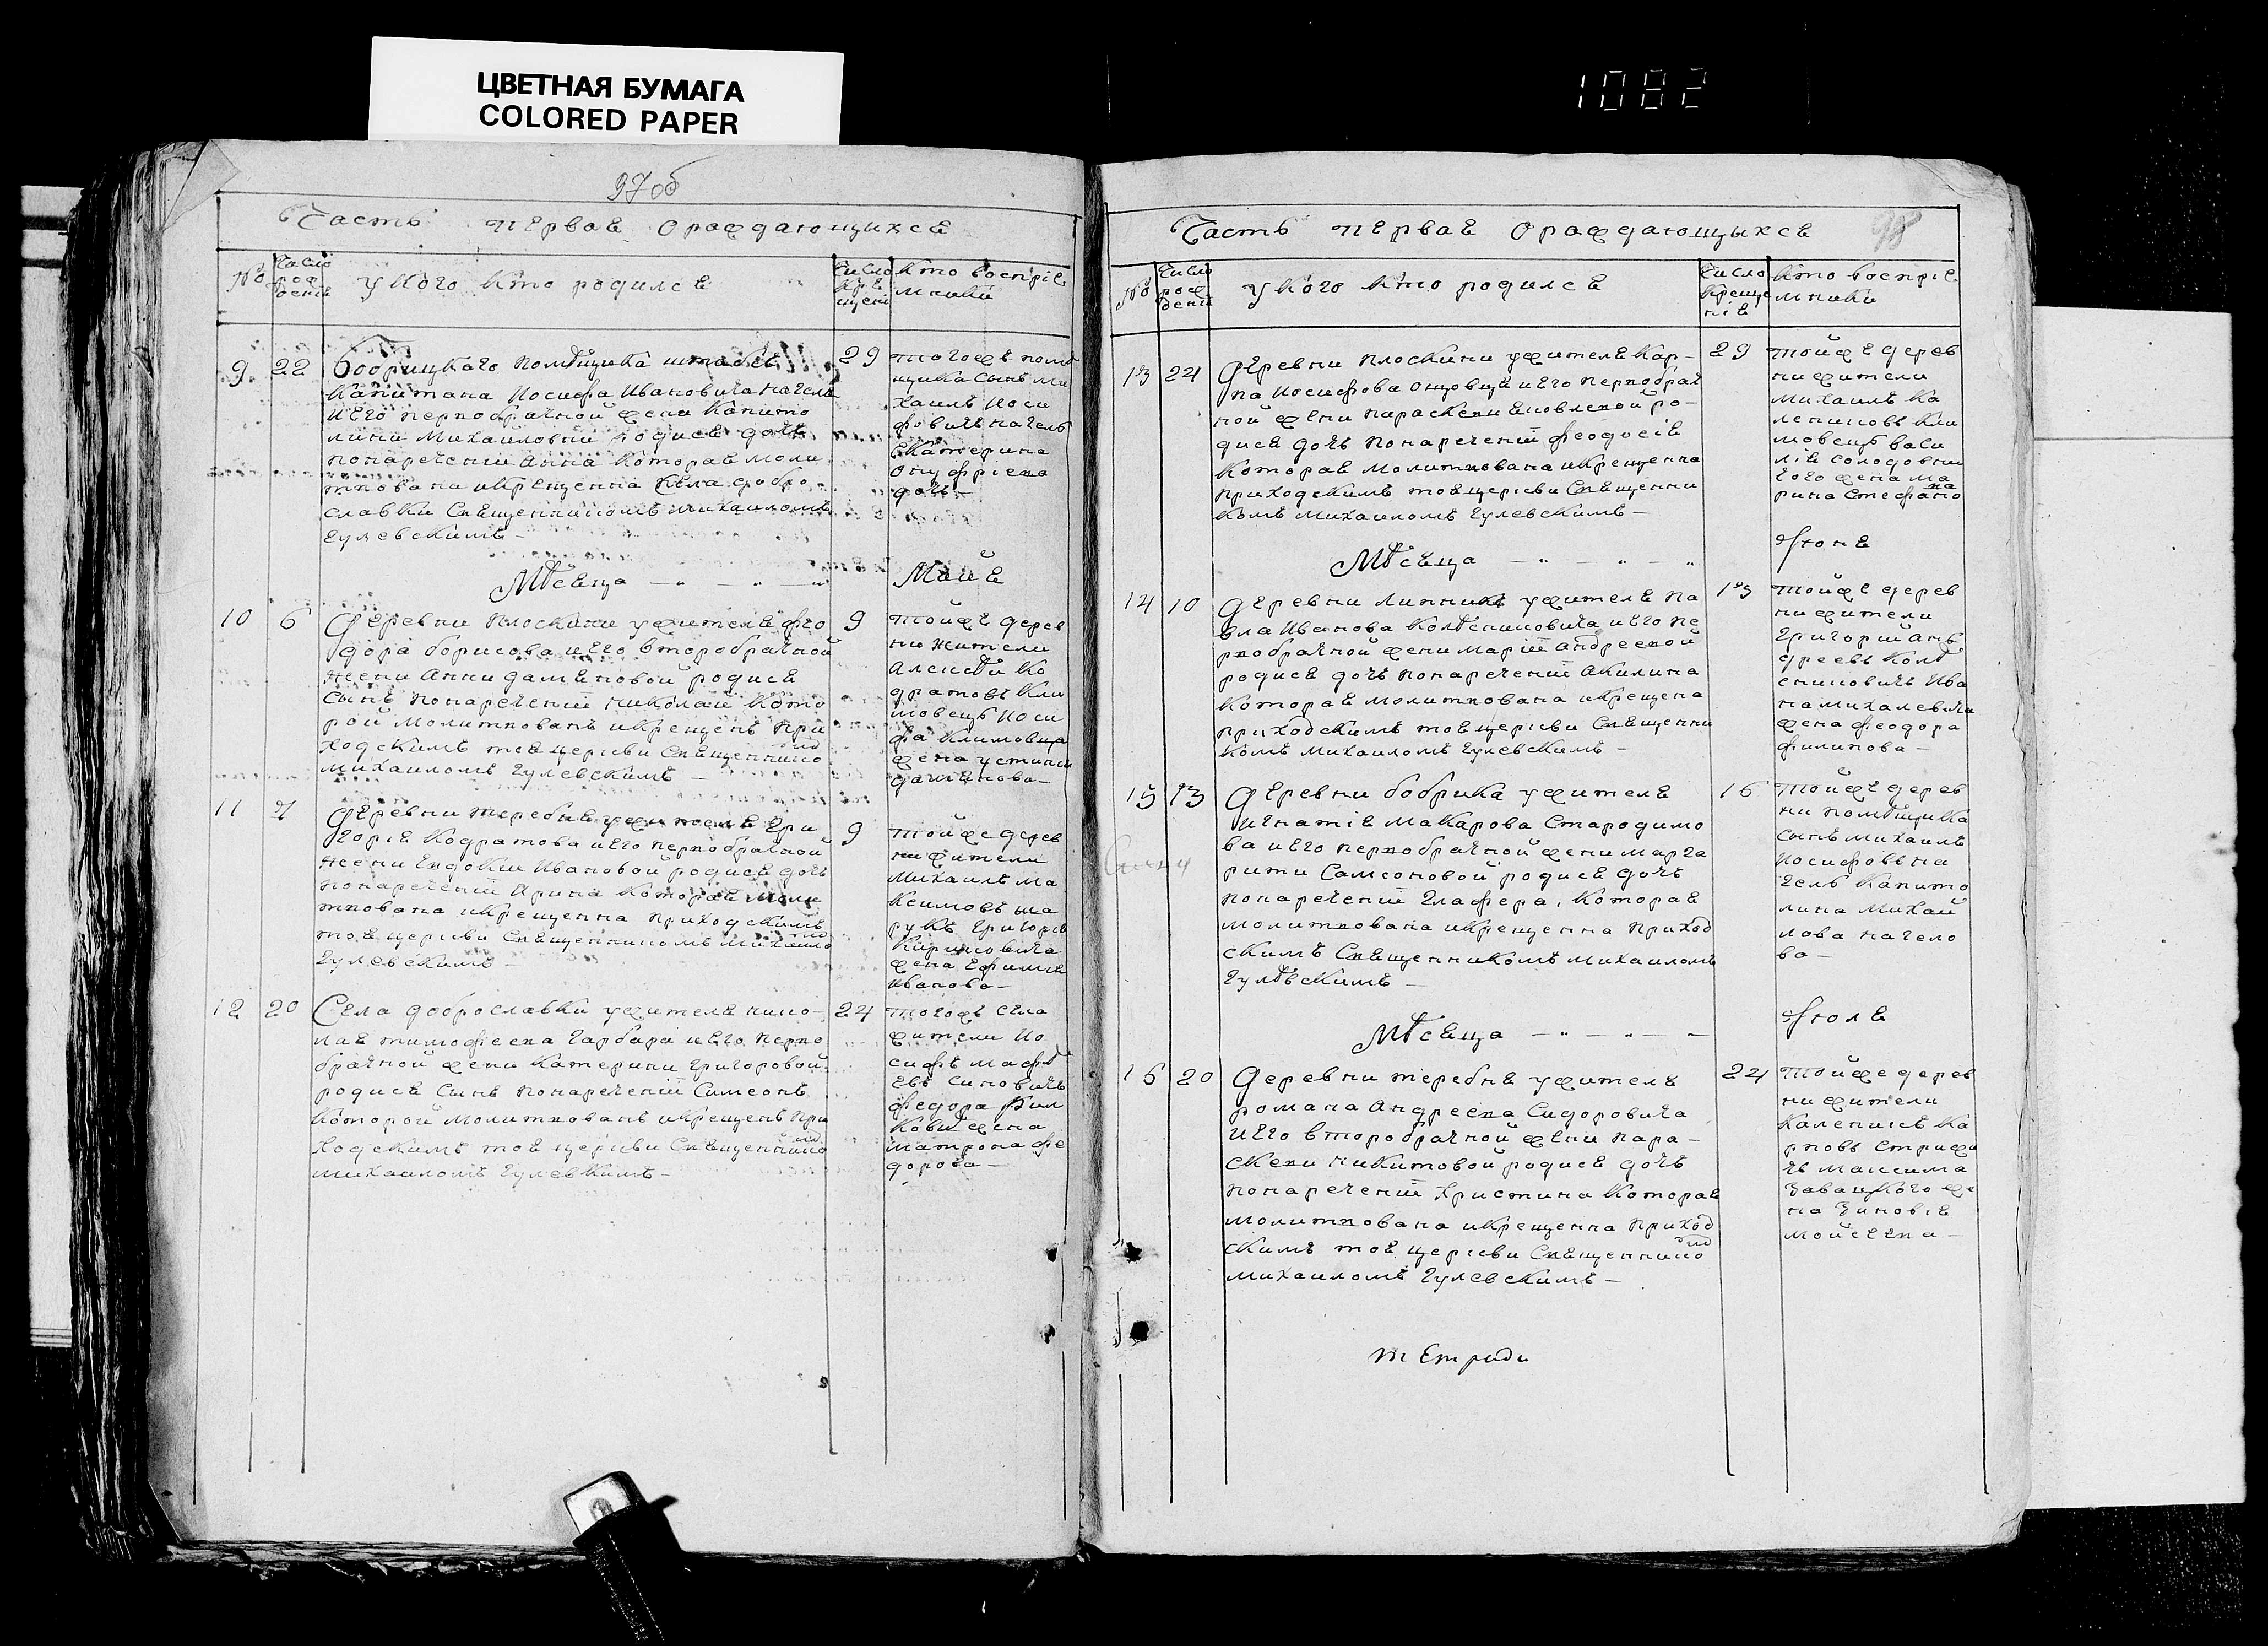 ЦВЕТНАЯ БУМАГА
COLORED PAPER
1082
97 об
Часть первая ораждающихся
№
Число рож дения
У кого кто родился
Число кре щен
Кто восприе
мники
9 22
Бобрицкаго помѣщика штабсъ
Капитана Иосифа Ивановича Нагеля
и его первобрачной жени Капито
лини Михайловни родися дочь
понаречении Анна которая моли
твована и крещенна села добро
славки Священникомъ Михаиломъ
Гулевскимъ –
29
тогожъ помѣ
щика сынъ Ми
хаилъ Иоси
фовичъ Нагель
Екатерина
Онуфріева
дочь –
Мѣсяца – „ – „ – „ Маия
10 6
Деревни Плоскини жителя Фео
дора Борисова и его второбрачной
жени Анни Дамяновой родися
сынъ понаречении Николай кото
рой молитвованъ и крещенъ при
ходскимъ тоя церкви Священнико
Михаиломъ Гулевскимъ –
9
тойже дерев
ни жители
Алексѣй Ко
дратовъ Кли
мовецъ Иоси
фа Климовца
жена Устиния
Дамянова –
11 7
Деревни Теребня жителя Гри
горія Кодратова и его первобрачной
жени Евдокии Ивановой родися дочь
понаречении Ирина которая моли
твована и крещенна приходскимъ
тоя церкви Священникомъ Михаило
Гулевскимъ –
9
тойже дерев
ни жители
Михаилъ Ма
ксимовъ Ша
рукъ Григорія
Кириловича
жена Ефимия
Иванова –
12 20
Села Доброславки жителя Нико–
лая Тимофеева Гарбара и его перво
брачной жени Катерини Григоровой
родися сынъ понаречении Симеонъ
которой молитвованъ и крещенъ при
ходскимъ тоя церкви Священнико
Михаиломъ Гулевкимъ –
24
тогожъ села
жители Ио
сифъ Мафѣ
евъ Синовичъ
Федора
жена
Матрона Фе
дорова –
98
Часть первая ораждающыхся
№
Число рож дении
У кого кто родился
Число креще нія
Кто восприе
мники
13 24
Деревни Плоскини жителя Кар–
па Иосифова Ощовця и его первобрач
ной жени Параскеви Яковлевой ро–
дися дочь понаречении Феодосія
которая молитвована и крещенна
приходскимъ тоя церкви Священни
комъ Михаиломъ Гулевскимъ –
29
тойже дерев
ни жители
Михаилъ Ка
лениковъ Кли
мовецъ Васи
лія Солодовни
чого жена Ма
рина Стефано
ва
Мѣсяца – „ – „ – „ Июня
14 10
Деревни Линники жителя Па
вла Иванова Колѣсниковича и его пе
рвобрачной жени Марии Андреевой
родися дочь понаречении Акилина
которая молитвована и крещена
приходскимъ тоя церкви Священни
комъ Михаиломъ Гулевскимъ –
13
тойже дерев
ни жители
Григорий Анъ
дреевъ Колѣ
сниковичъ Ива
на Михалевича
жена Феодора
Филипова –
15 13
Деревни Бобрика жителя
Игнатія Макарова Стародимо
ва и его первобрачной жени Марга
рити Самсоновой родися дочь
понаречении Глафера, которая
молитвована и крещенна приход
скимъ Священникомъ Михаиломъ
Гулѣвскимъ –
16
тойже дерев
ни помѣщика
сынъ Михаилъ
Иосифовъ На
гель Капито
лина Михай
лова Нагело
ва –
Мѣсяца – „ – „ – Июля
16 20
Деревни Теребня жителя
Романа Андреева Сидоровича
и его второбрачной жени Пара–
скеви Никитовой родися дочь
понаречении Христина которая
молитвована и крещенна приход
скимъ тоя церкви Священнико
Михаиломъ Гулевскимъ –
24
тойже дерев
ни жители
Каленикъ Ка
рповъ Стрижи
чъ Максима
Завацкого же
на Зиновія
Мойсеева –